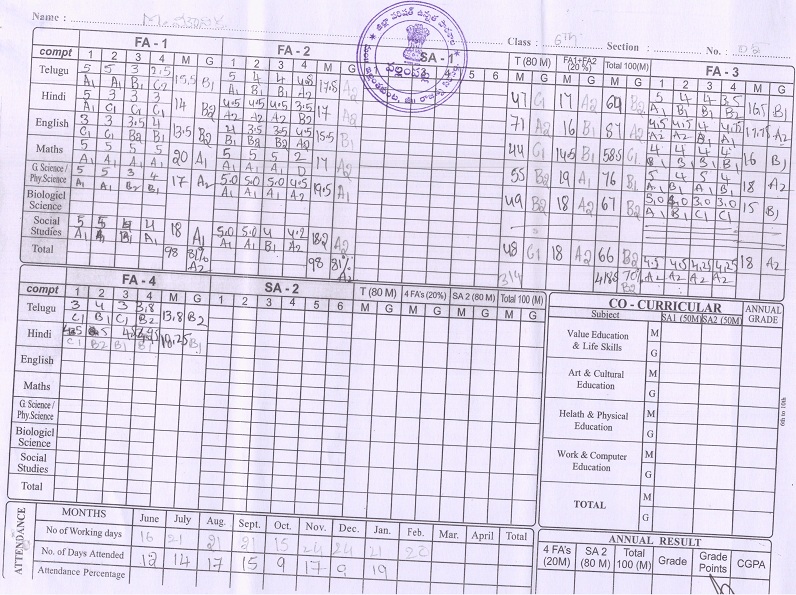 Name : M.
Class : 6th Section : No. : 05
compt FA - 1 FA - 2 SA - 1 T (80 M) FA1+FA2 (20 %) Total 100(M) FA - 3
1 2 3 4 M G 1 2 3 4 M G 4 5 6 M G M G M G 1 2 3 4 M G
Telugu 5 5 3 2.5 15.5 B1 5 4 4 4.5 17.5 A2 47 C1 17 A2 64 B2 5 4 4 3.5 16.5 B1
A1 A1 B1 C2 A1 B1 B1 A2 A1 B1 B1 B2
Hindi 5 3 3 3 14 B2 4.5 4.5 4.5 3.5 17 A2 71 A2 16 B1 87 A2 4.5 4.5 4 4.75 17.75 A2
A1 C1 C1 C1 A2 A2 A2 B2 A2 A2 B1 A2
English 3 3 3.5 4 13.5 B2 4 3.5 3.5 4.5 15.5 B1 44 C1 14.5 B1 58.5 C1 4 4 4 4 16 B1
C1 C1 B2 B1 B1 B2 B2 A2 B1 B1 B1 B1
Maths 5 5 5 5 20 A1 5 5 5 2 17 A2 55 B2 19 A1 76 B1 5 4 5 4 18 A2
A1 A1 A1 A1 A1 A1 A1 D A1 B1 A1 B1
G. Science / Phy.Science 5 5 3 4 17 A2 5.0 5.0 5.0 4.5 19.5 A1 49 B2 18 A2 67 B2 15 B1
A1 A1 B2 B1 A1 A1 A1 A2 A1 B1 C1 C1
Biologicel Science
Social Studies 5 5 4 4 18 A1 5.0 5.0 4 4.2 18.2 A2 48 C1 18 A2 66 B2 4.5 4.5 4.25 4.25 18 A2
A1 A1 B1 A1 A1 A1 B1 A2 A2 A2 A2 A2
Total 98 81% A2 98 81% A2 314 418.5 70%
compt FA - 4 SA - 2 T (80 M) 4 FA's (20%) SA 2 (80 M) Total 100 (M)
1 2 3 4 M G 1 2 3 4 5 6 M G M G M G M G
Telugu 3 4 3 3.8 13.8 B2
C1 B1 C1 B2
Hindi 18.25 B1
C1 B2 B1
English
Maths
G. Science / Phy.Science
Biologicl Science
Social Studies
Total
CO - CURRICULAR ANNUAL GRADE
Subject SA1 (50M) SA2 (50M)
Value Education & Life Skills M G
Art & Cultural Education M G
Helath & Physical Education M G
Work & Computer Education M G
TOTAL M G
6th to 10th
ATTENDANCE
MONTHS June July Aug. Sept. Oct. Nov. Dec. Jan. Feb. Mar. April Total
No of Working days 16 21 21 21 15 24 24 21 22
No. of Days Attended 12 14 17 15 9 17 9 19
Attendance Percentage
ANNUAL RESULT
4 FA's (20M) SA 2 (80 M) Total 100 (M) Grade Grade Points CGPA